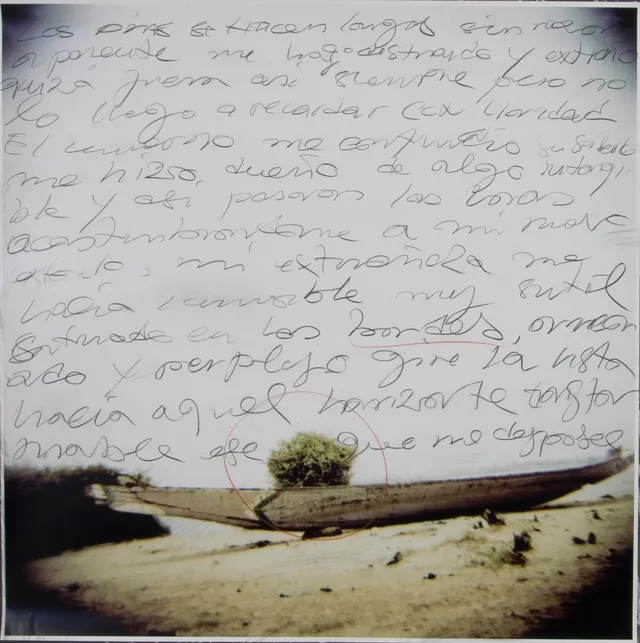 Los días se hacen largos sin razon
aparente me hago distraido y extraño
quizá fuera asi siempre pero no
lo llego a recordar con claridad
El universo me confundio
me hizo dueño de algo intangi-
ble y asi pasaron las horas
acostumbrandome a mi nuevo
estado, mi extrañeza me
hacia invisible muy sutil
en los bordes,
y perplejo gire la vista
hacia aquel horizonte transfor
mable ese que me desposee